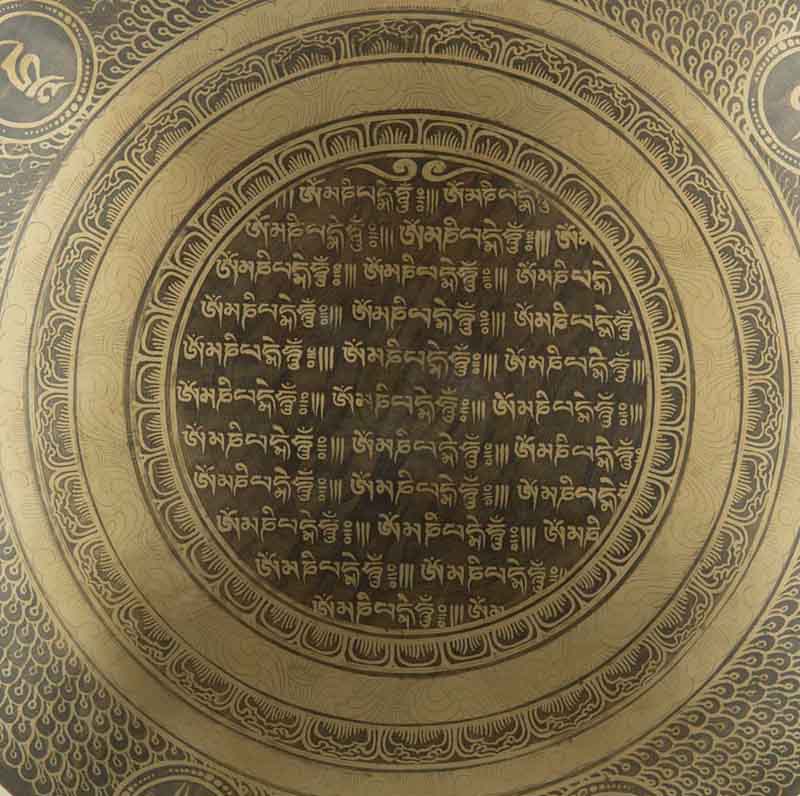 །།།ཨོཾ་མ་ཎི་པདྨེ་ཧཱུྃ༔།།། ཨོཾ་མ་ཎི་པདྨེ་ཧཱུྃ
ཨོཾ་མ་ཎི་པདྨེ་ཧཱུྃ༔།།། ཨོཾ་མ་ཎི་པདྨེ་ཧཱུྃ༔།།། ཨོཾ་མ
ཨོཾ་མ་ཎི་པདྨེ་ཧཱུྃ༔།།། ཨོཾ་མ་ཎི་པདྨེ་ཧཱུྃ༔།།། ཨོཾ་མ་ཎི་པདྨེ
ཨོཾ་མ་ཎི་པདྨེ་ཧཱུྃ༔།།། ཨོཾ་མ་ཎི་པདྨེ་ཧཱུྃ༔།།། ཨོཾ་མ་ཎི་པདྨེ་ཧཱུྃ༔
ཨོཾ་མ་ཎི་པདྨེ་ཧཱུྃ༔།།། ཨོཾ་མ་ཎི་པདྨེ་ཧཱུྃ༔།།། ཨོཾ་མ་ཎི་པདྨེ་ཧཱུྃ༔།།།
ཨོཾ་མ་ཎི་པདྨེ་ཧཱུྃ༔།།། ཨོཾ་མ་ཎི་པདྨེ་ཧཱུྃ༔།།། ཨོཾ་མ་ཎི་པདྨེ་ཧཱུྃ༔།།།
ཨོཾ་མ་ཎི་པདྨེ་ཧཱུྃ༔།།། ཨོཾ་མ་ཎི་པདྨེ་ཧཱུྃ༔།།། ཨོཾ་མ་ཎི་པདྨེ་ཧཱུྃ༔
ཨོཾ་མ་ཎི་པདྨེ་ཧཱུྃ༔།།། ཨོཾ་མ་ཎི་པདྨེ་ཧཱུྃ༔།།། ཨོཾ་མ་ཎི་པདྨེ་ཧཱུྃ
ཨོཾ་མ་ཎི་པདྨེ་ཧཱུྃ༔།།། ཨོཾ་མ་ཎི་པདྨེ་ཧཱུྃ༔།།། ཨོཾ་མ་ཎི
ཨོཾ་མ་ཎི་པདྨེ་ཧཱུྃ༔།།། ཨོཾ་མ་ཎི་པདྨེ་ཧཱུྃ༔།།
ཨོཾ་མ་ཎི་པདྨེ་ཧཱུྃ༔།།། ཨོཾ་མ